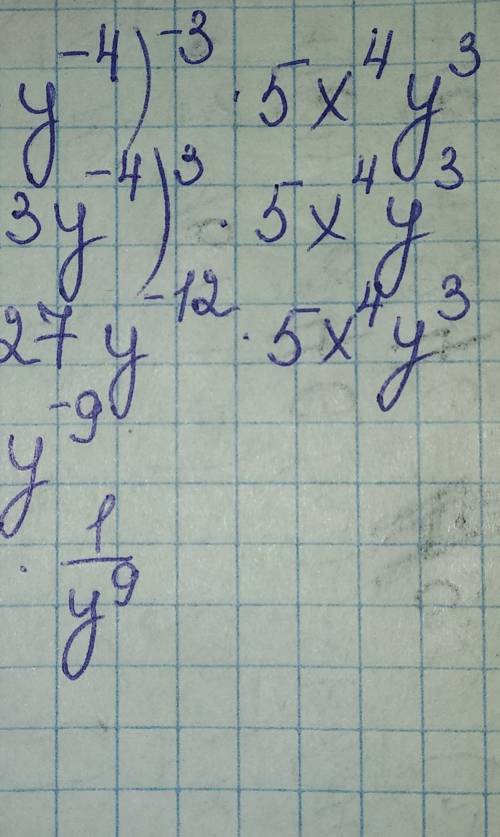 y⁻⁴)⁻³ · 5x⁴y³
3y⁻⁴)³ · 5x⁴y³
27y⁻¹² · 5x⁴y³
y⁻⁹
· 1/y⁹